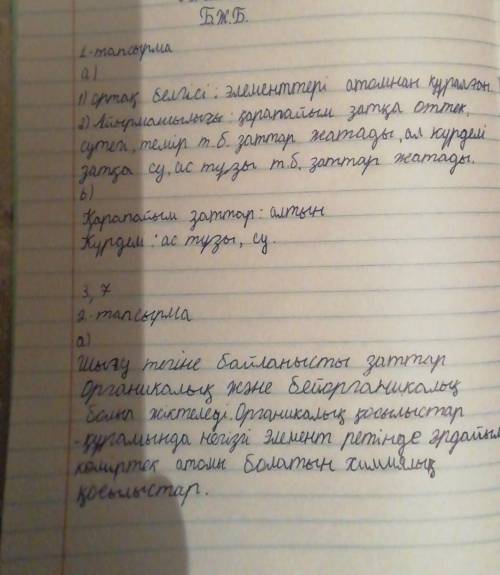 Б.Ж.Б.
1-тапсырма
а)
1) ортақ белгісі: элементтері атомнан құралған
2) Айырмашылығы: қарапайым затқа оттек,
сутек, темір т.б. заттар жатады, ал күрделі
затқа су, ас тұзы т.б. заттар жатады.
b)
Қарапайым заттар: алтын
Күрделі: ас тұзы, су.
3, 7
2-тапсырма
а)
Шығу тегіне байланысты заттар
Органикалық және бейорганикалық
болып жіктеледі. Органикалық қосылыстар
-құрамында негізгі элемент ретінде әрдайым
көміртек атомы болатын химиялық
қосылыстар.